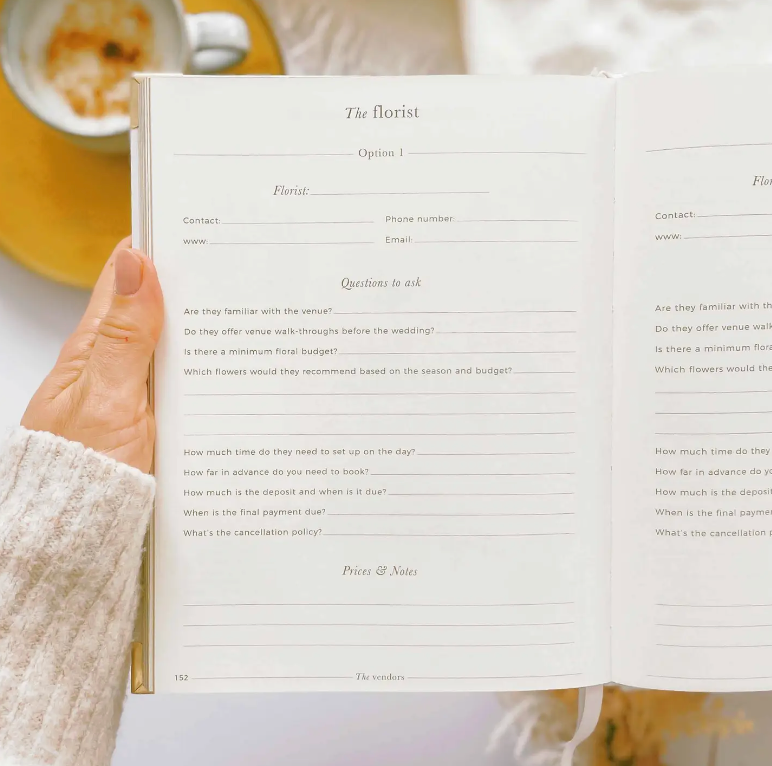 The florist
Option 1
Florist:
Contact: Phone number:
www: Email:
Questions to ask
Are they familiar with the venue?
Do they offer venue walk-throughs before the wedding?
Is there a minimum floral budget?
Which flowers would they recommend based on the season and budget?
How much time do they need to set up on the day?
How far in advance do you need to book?
How much is the deposit and when is it due?
When is the final payment due?
What's the cancellation policy?
Prices & Notes
152 The vendors
Contact:
www:
Are they familiar with
Do they offer venue
Is there a minimum
Which flowers would
How much time do they
How far in advance do
How much is the
When is the final
What's the cancellation